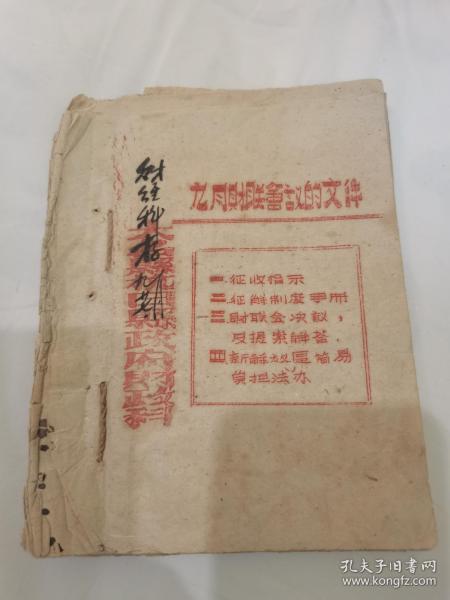 九月財联會议的文件
一.征收指示
二.征解制度手册
三.財联会决议,
及提案解答
四.新解放區简易
負担法办
財经科存
縣政府財政科
孔夫子旧书网
www.kongfz.com